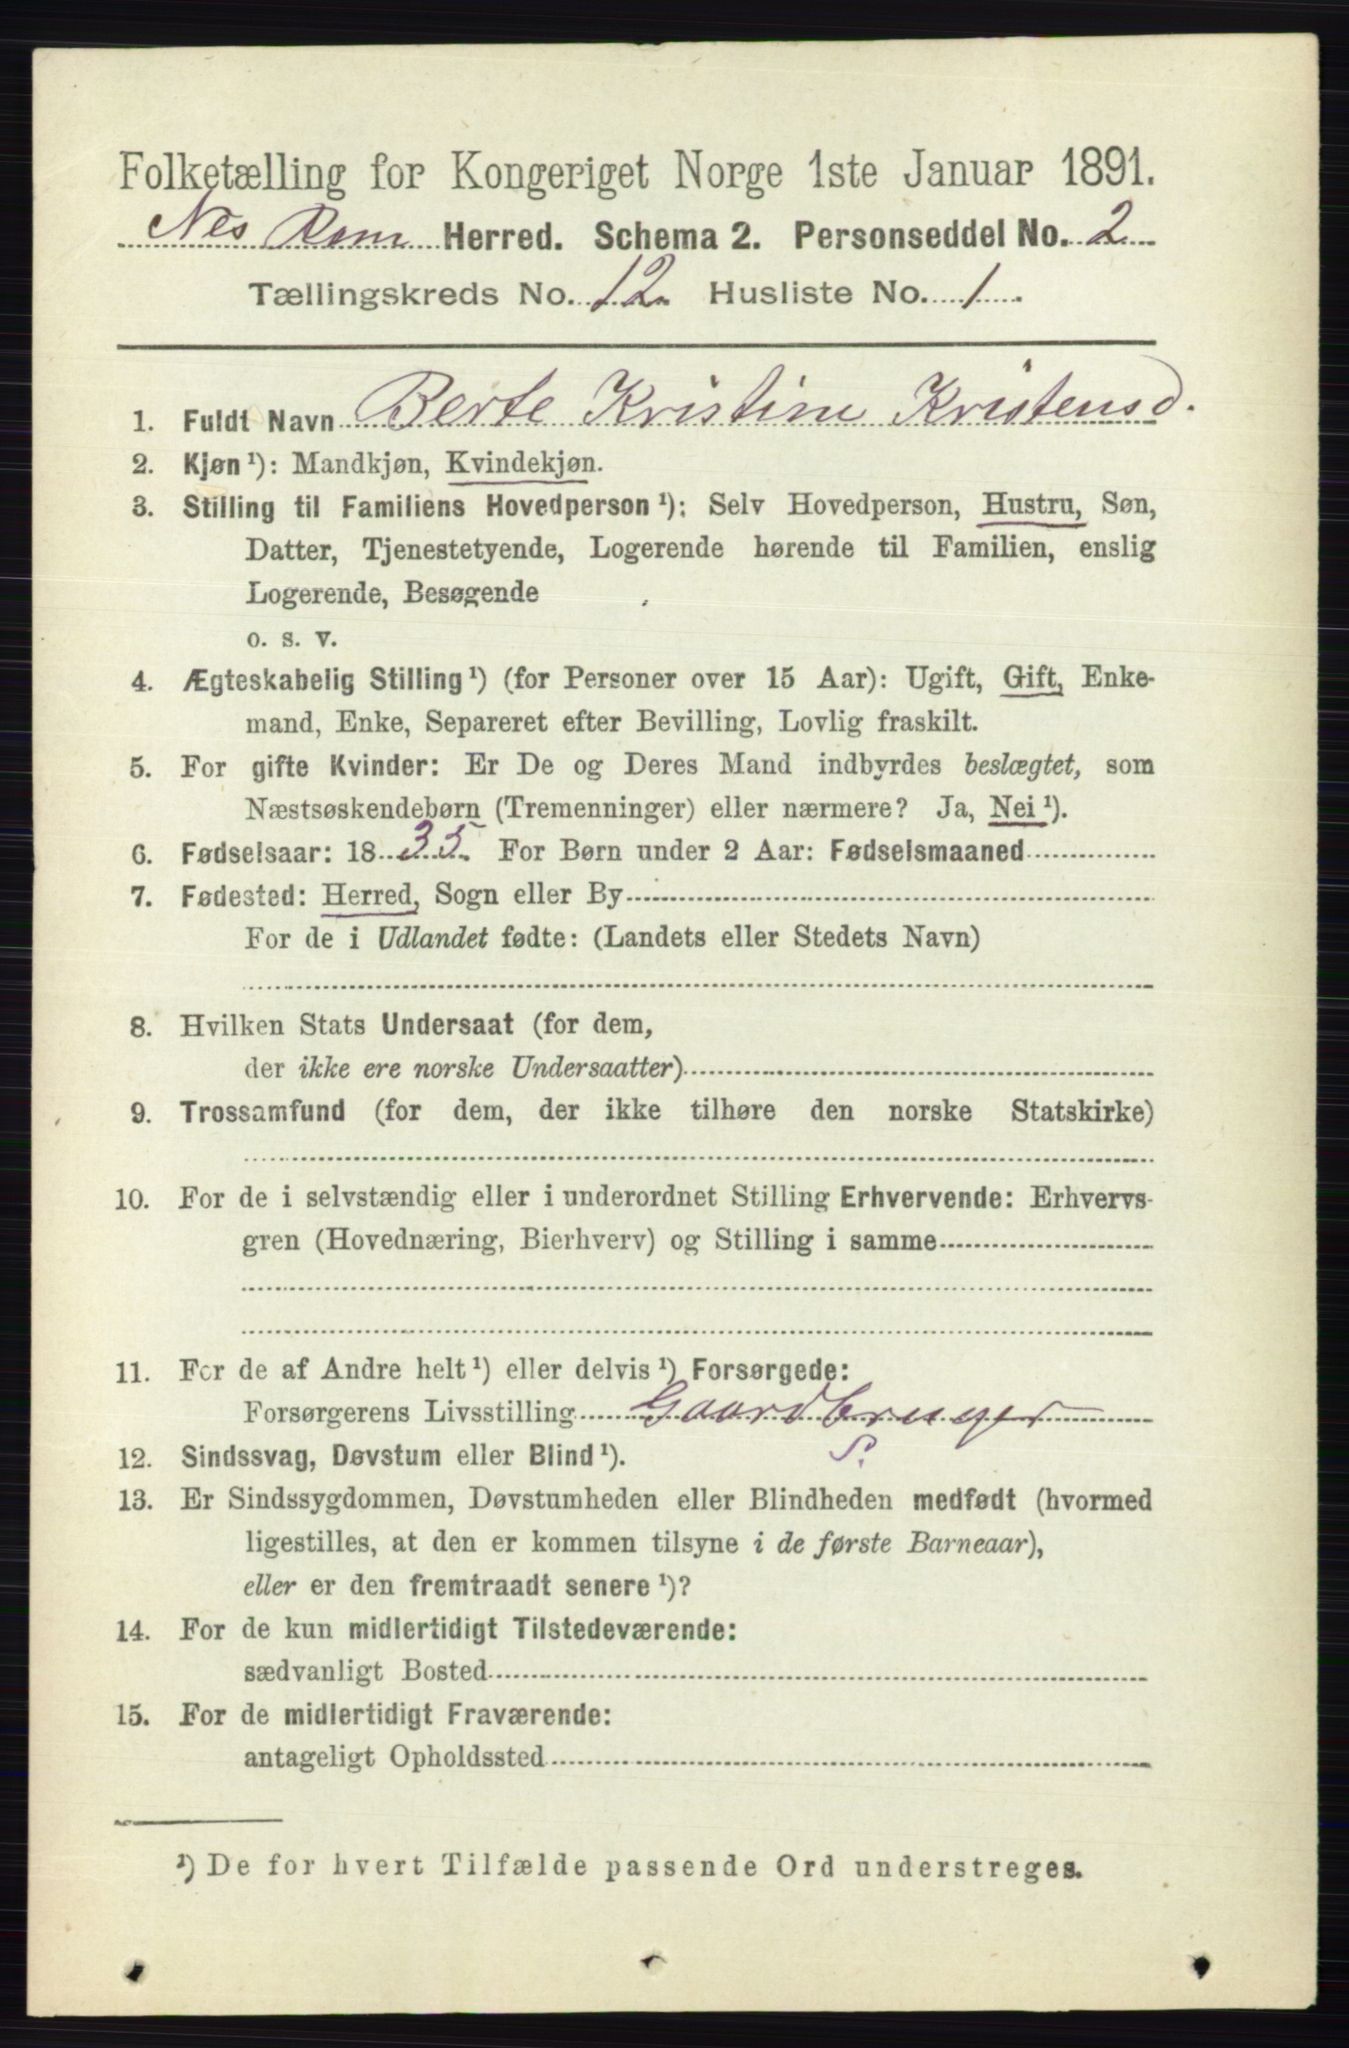 Folketælling for Kongeriget Norge 1ste Januar 1891.
Nes Rom Herred. Schema 2. Personseddel No. 2
Tællingskreds No. 12. Husliste No. 1.
1. Fuldt Navn Berte Kristine Kristensd.
2. Kjøn¹): Mandkjøn, Kvindekjøn.
3. Stilling til Familiens Hovedperson¹): Selv Hovedperson, Hustru, Søn,
Datter, Tjenestetyende, Logerende hørende til Familien, enslig
Logerende, Besøgende
o. s. v.
4. Ægteskabelig Stilling¹) (for Personer over 15 Aar): Ugift, Gift, Enke-
mand, Enke, Separeret efter Bevilling, Lovlig fraskilt.
5. For gifte Kvinder: Er De og Deres Mand indbyrdes beslægtet, som
Næstsøskendebørn (Tremenninger) eller nærmere? Ja, Nei¹).
6. Fødselsaar: 1835. For Børn under 2 Aar: Fødselsmaaned
7. Fødested: Herred, Sogn eller By
For de i Udlandet fødte: (Landets eller Stedets Navn)
8. Hvilken Stats Undersaat (for dem,
der ikke ere norske Undersaatter)
9. Trossamfund (for dem, der ikke tilhøre den norske Statskirke)
10. For de i selvstændig eller i underordnet Stilling Erhvervende: Erhvervs-
gren (Hovednæring, Bierhverv) og Stilling i samme
11. For de af Andre helt¹) eller delvis¹) Forsørgede:
Forsørgerens Livsstilling Gaardbruger
S.
12. Sindssvag, Døvstum eller Blind¹).
13. Er Sindssygdommen, Døvstumheden eller Blindheden medfødt (hvormed
ligestilles, at den er kommen tilsyne i de første Barneaar),
eller er den fremtraadt senere¹)?
14. For de kun midlertidigt Tilstedeværende:
sædvanligt Bosted
15. For de midlertidigt Fraværende:
antageligt Opholdssted
¹) De for hvert Tilfælde passende Ord understreges.